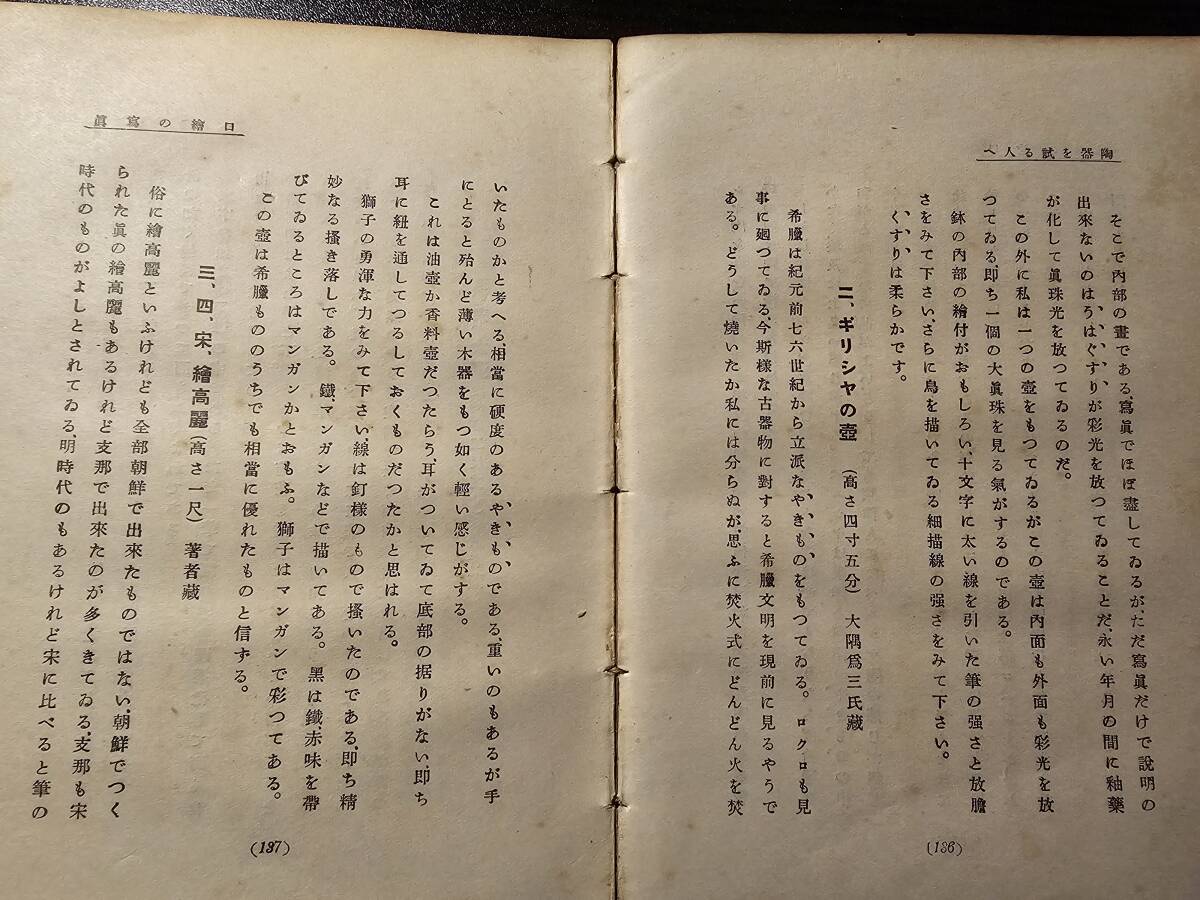 陶器を試る人へ
そこで內部の畫である、寫眞でほぼ盡してゐるが、ただ寫眞だけで說明の
出來ないのはうはぐすりが彩光を放つてゐることだ、永い年月の間に釉藥
が化して眞珠光を放つてゐるのだ。
この外に私は一つの壺をもつてゐるがこの壺は內面も外面も彩光を放
つてゐる、卽ち一個の大眞珠を見る氣がするのである。
鉢の內部の繪付がおもしろい、十文字に太い線を引いた筆の强さと放膽
さをみて下さい、さらに鳥を描いてゐる細描線の强さをみて下さい。
くすりは柔らかです。
二、ギリシヤの壺 (高さ四寸五分) 大隅爲三氏藏
希臘は紀元前七六世紀から立派なやきものをもつてゐる。ロクロも見
事に廻つてゐる、今斯樣な古器物に對すると希臘文明を現前に見るやうで
ある。どうして燒いたか私には分らぬが、思ふに焚火式にどんどん火を焚
(136)
口繪の寫眞
いたものかと考へる、相當に硬度のあるやきものである、重いのもあるが手
にとると殆んど薄い木器をもつ如く輕い感じがする。
これは油壺か香料壺だつたらう、耳がついてゐて底部の据りがない、卽ち
耳に紐を通してつるしておくものだつたかと思はれる。
獅子の勇渾な力をみて下さい線は釘樣のもので搔いたのである、卽ち精
妙なる搔き落しである。鐵、マンガンなどで描いてある。黑は鐵赤味を帶
びてゐるところはマンガンかとおもふ。獅子はマンガンで彩つてある。
この壺は希臘もののうちでも相當に優れたものと信ずる。
三、四、宋、繪高麗 (高さ一尺) 著者藏
俗に繪高麗といふけれども全部朝鮮で出來たものではない、朝鮮でつく
られた眞の繪高麗もあるけれど支那で出來たのが多くきてゐる、支那も宋
時代のものがよしとされてゐる、明時代のもあるけれど宋に比べると筆の
(137)